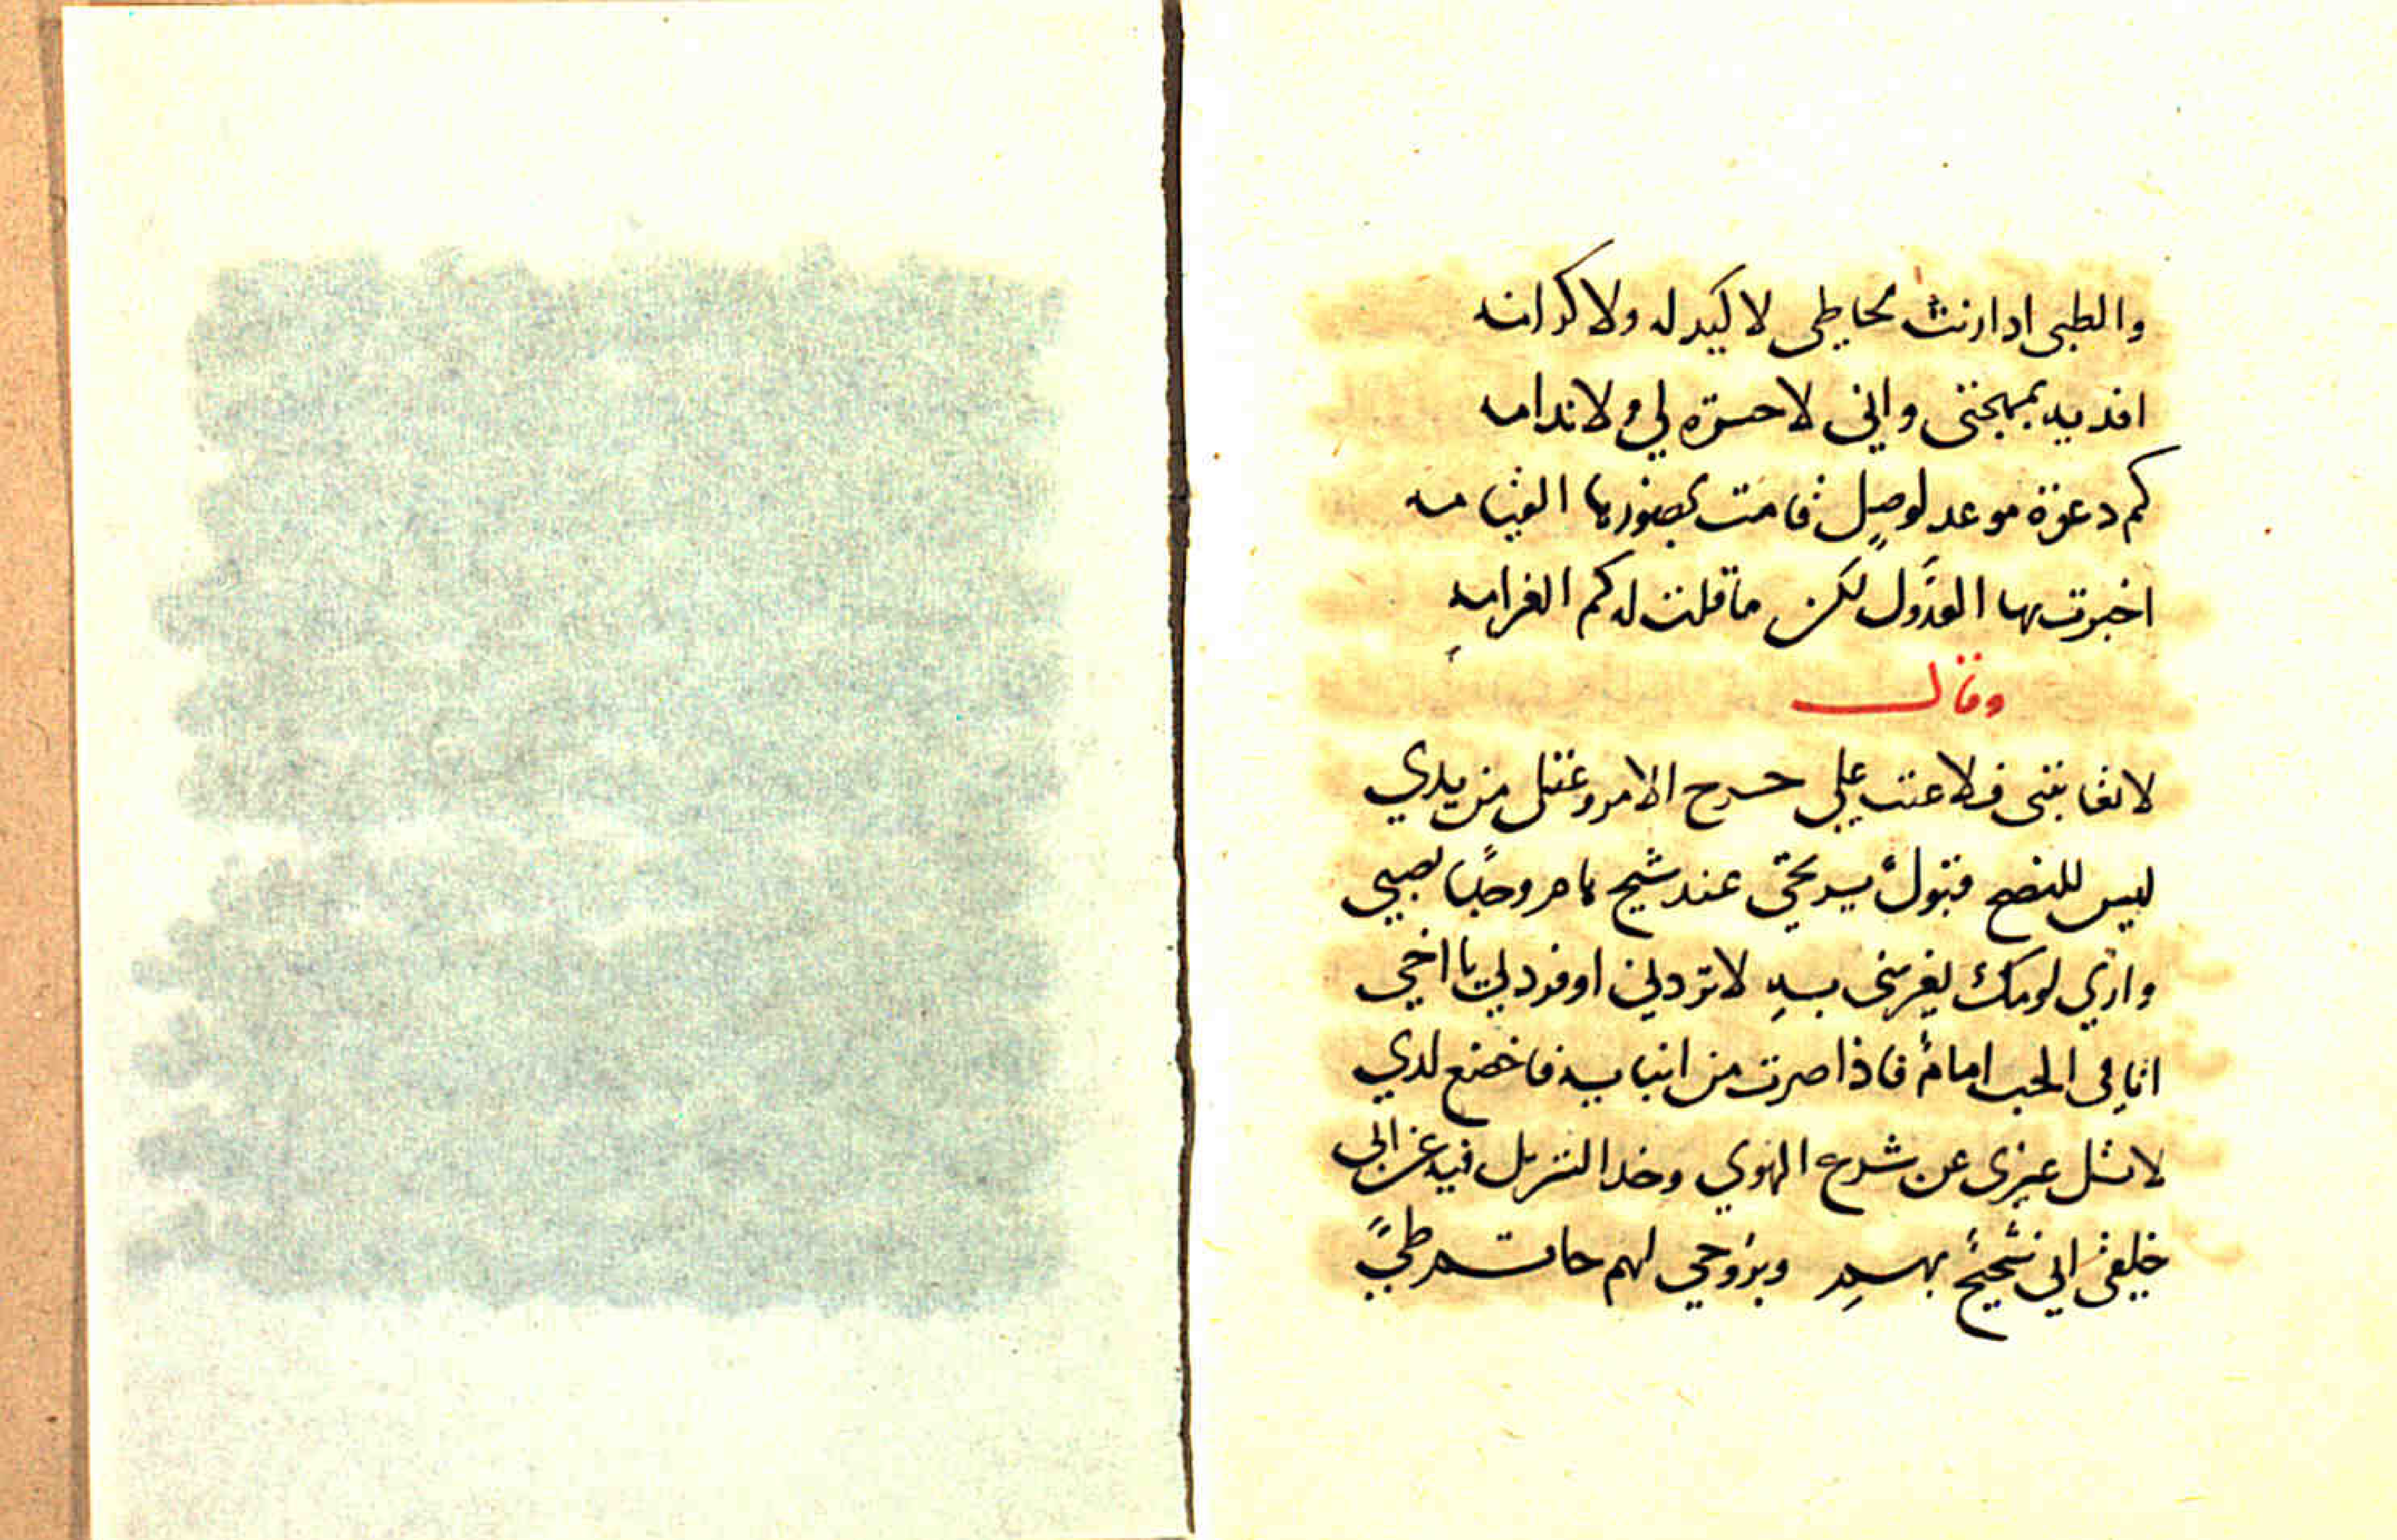 والظبي اذا رنت لحاظي لا كيد له ولا كرامه
افديه بمهجتي واني لا حسرة لي ولا ندامه
كم دعوة موعد لوصل قامت بحضورها القيامه
اخبرت بها العذول لكن ما قلت له كم الغرامه
وقال
لا تعاتبني فلا عتب علي خرج الامر وعقل من يدي
ليس للنصح قبول يرتجى عند شيخ هام وجدا بصبي
واري لومك يغريني به لا تزدني او فزد لي يا اخي
انا في الحب امام فاذا صرت من اتباعه فاخضع لدي
لا تسل غيري عن شرع الهوي وخذ التنزيل فيه عن
اني بهم وبروحي لهم